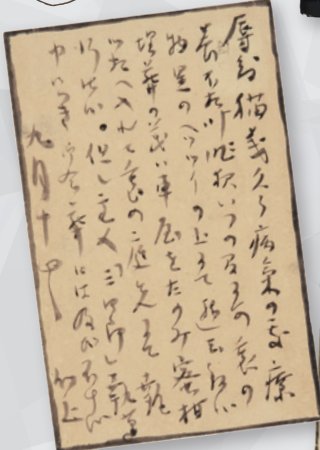 辱知猫義久く病気の処療
養不相叶昨夜いつの間にか裏の
物置のヘツツイの上にて逝去致候
埋葬の義は車屋をたのみ蜜柑
箱へ入れて裏の庭先にて執
行仕候。但し主人「三四郎」執筆
中につき御会葬には及び不申候 以上
九月十四日